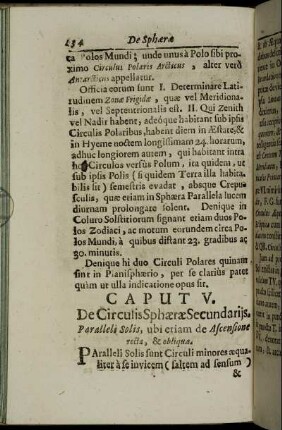 234 De Sphæra
ca Polos Mundi; unde unus à Polo sibi pro-
ximo Circulus Polaris Arcticus, alter verò
Antarcticus appellatur.
Officia eorum sunt I. Determinare Lati-
tudinem Zonæ Frigidæ, quæ vel Meridiona-
lis, vel Septentrionalis est. II. Qui Zenith
vel Nadir habent, adeóque habitant sub ipsis
Circulis Polaribus, habent diem in Æstate, &
in Hyeme noctem longissimam 24. horarum,
adhuc longiorem autem, qui habitant intra
hos Circulos versùs Polum, ita quidem, ut
sub ipsis Polis (si quidem Terra illa habita-
bilis sit) semestris evadat, absque Crepu-
sculis, quæ etiam in Sphæra Parallela lucem
diurnam prolongare solent. Denique in
Coluro Solstitiorum signant etiam duos Po-
los Zodiaci, ac motum eorundem circa Po-
los Mundi, à quibus distant 23. gradibus ac
30. minutis.
Denique hi duo Circuli Polares quinam
sint in Planisphærio, per se clariùs patet
quàm ut ulla indicatione opus sit.
CAPUT V.
De Circulis Sphæræ Secundarijs,
Parallelis Solis, ubi etiam de Ascensione
recta, & obliqua.
Paralleli Solis sunt Circuli minores æqua-
liter à se invicem (saltem ad sensum)
&